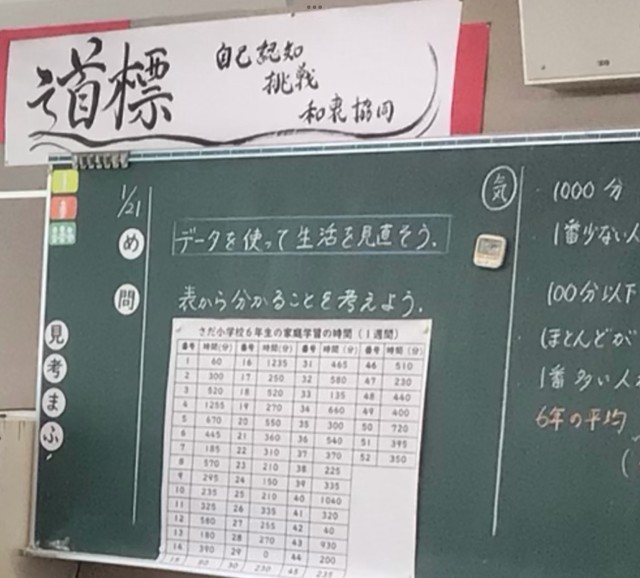 道標
自己認知
挑戦
和衷協同
1/21
め
データを使って生活を見直そう。
問
表から分かることを考えよう。
見
考
ま
ふ
さだ小学校6年生の家庭学習の時間(1週間)
番号 時間(分) 番号 時間(分) 番号 時間(分) 番号 時間(分)
1 60 16 1235 31 465 46 510
2 300 17 250 32 580 47 230
3 520 18 520 33 135 48 440
4 1255 19 270 34 660 49 400
5 670 20 550 35 300 50 720
6 445 21 360 36 540 51 395
7 185 22 310 37 370 52 350
8 570 23 210 38 225
9 295 24 150 39 335
10 235 25 210 40 1040
11 325 26 335 41 320
12 580 27 255 42 40
13 180 28 270 43 930
14 390 29 0 44 200
15 90 30 230 45 235
気
・1000分
・1番少ない人
・100分以下
・ほとんどが
・1番多い人
6年の平均